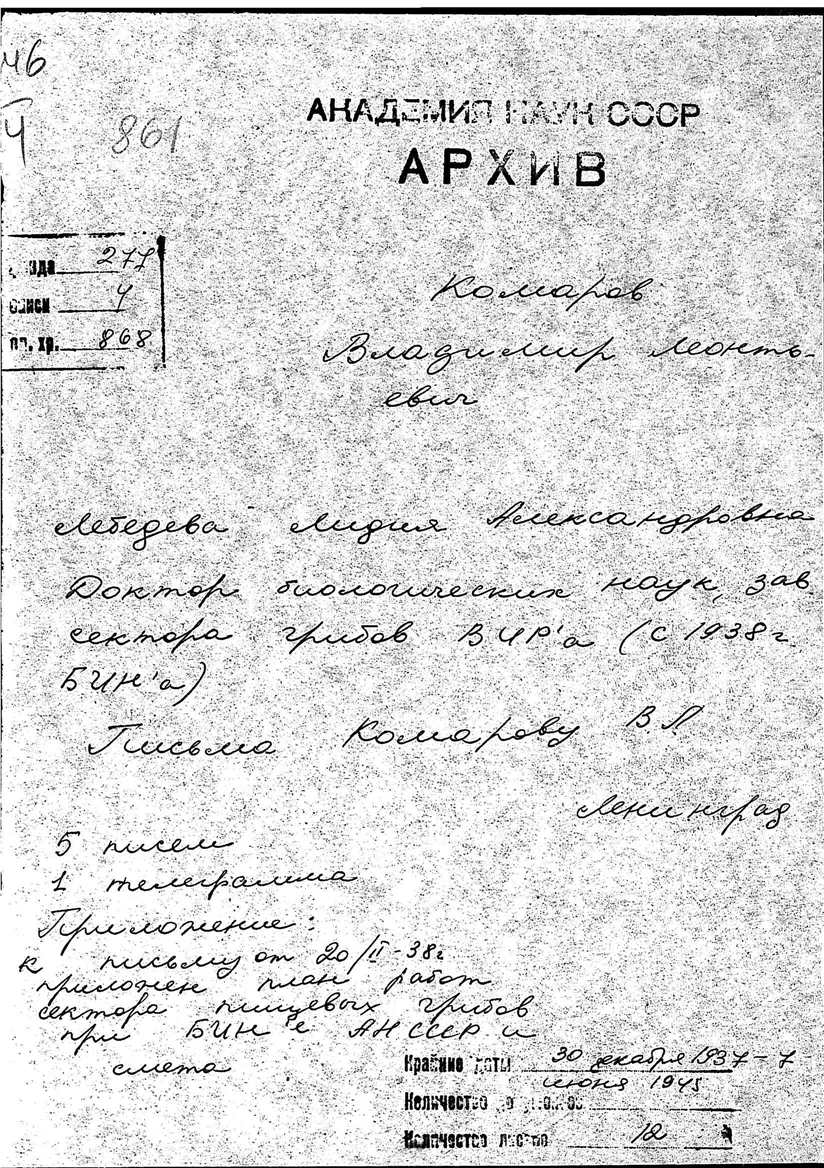 46
4 861
АКАДЕМИЯ НАУК СССР
АРХИВ
277
описи 4
хр. 868
Комаров
Владимир Леонть-
евич
Лебедева Лидия Александровна
Доктор биологических наук, зав
сектора грибов ВИР'а (с 1938 г.
БИН'а)
Письма Комарову В Л
Ленинград
5 писем
1 телеграмма
Приложение:
к письму от 20/II-38 г.
приложен план работ
сектора пищевых грибов
при БИН'е АН СССР и
смета
Крайние даты 30 декабря 1937 - 7
июня 1945
Количество
Количество листов 12